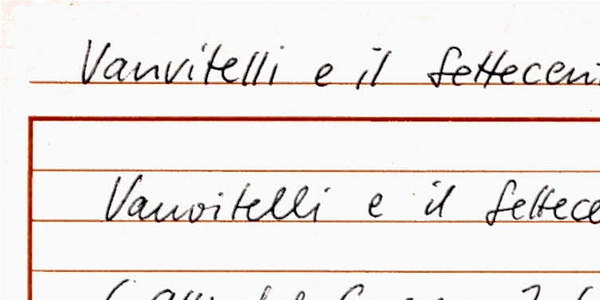 Vanvitelli e il Settecen
Vanvitelli e il Settece